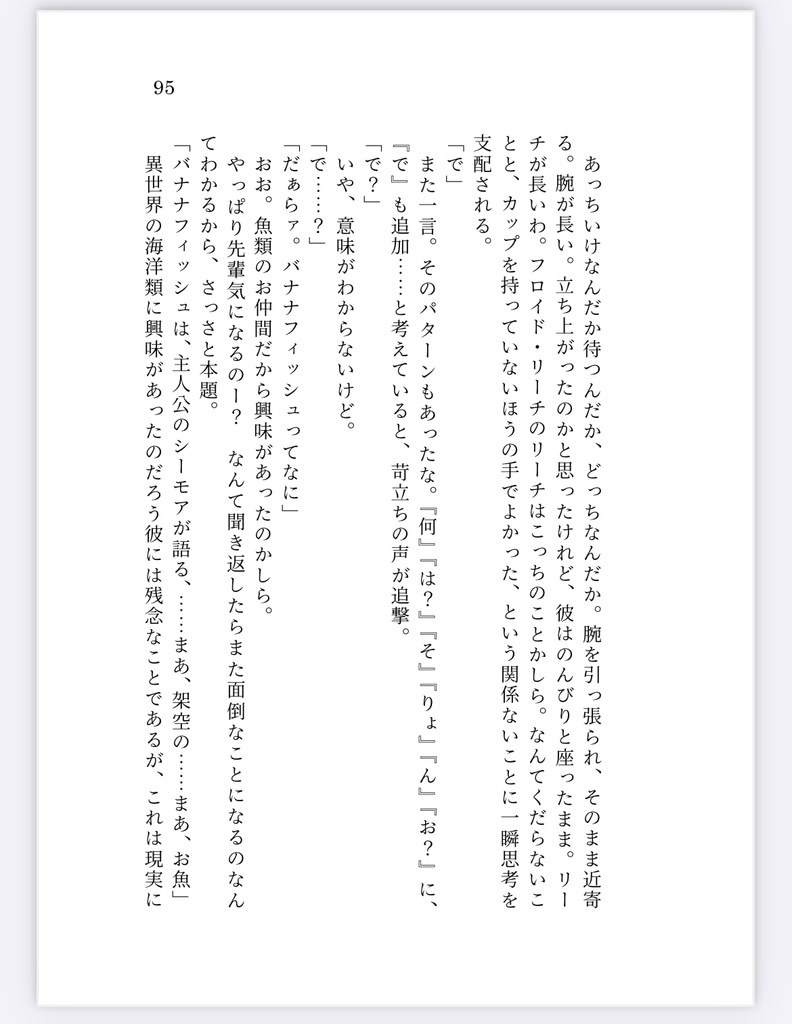 95
あっちいけなんだか待つんだか、どっちなんだか。腕を引っ張られ、そのまま近寄
る。腕が長い。立ち上がったのかと思ったけれど、彼はのんびりと座ったまま。リー
チが長いわ。フロイド・リーチのリーチはこっちのことかしら。なんてくだらないこ
とと、カップを持っていないほうの手でよかった、という関係ないことに一瞬思考を
支配される。
「で」
また一言。そのパターンもあったな。『何』『は？』『そ』『りょ』『ん』『お？』に、
『で』も追加……と考えていると、苛立ちの声が追撃。
「で？」
いや、意味がわからないけど。
「で……？」
「だぁらァ。バナナフィッシュってなに」
おお。魚類のお仲間だから興味があったのかしら。
やっぱり先輩気になるのー？　なんて聞き返したらまた面倒なことになるのなん
てわかるから、さっさと本題。
「バナナフィッシュは、主人公のシーモアが語る、……まあ、架空の……まあ、お魚」
異世界の海洋類に興味があったのだろう彼には残念なことであるが、これは現実に